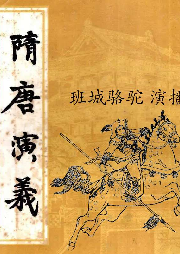 隋唐演義
班城骆驼 演播